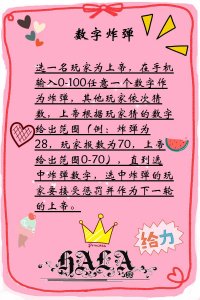 数字炸弹
选一名玩家为上帝，在手机
输入0-100任意一个数字作
为炸弹，其他玩家依次猜
数，上帝根据玩家猜的数字
给出范围（例：炸弹为
28，玩家报数为70，上帝
给出范围0-70），直到选
中炸弹数字，选中炸弹的玩
家要接受惩罚并作为下一轮
的上帝。
princess
给力
HALA